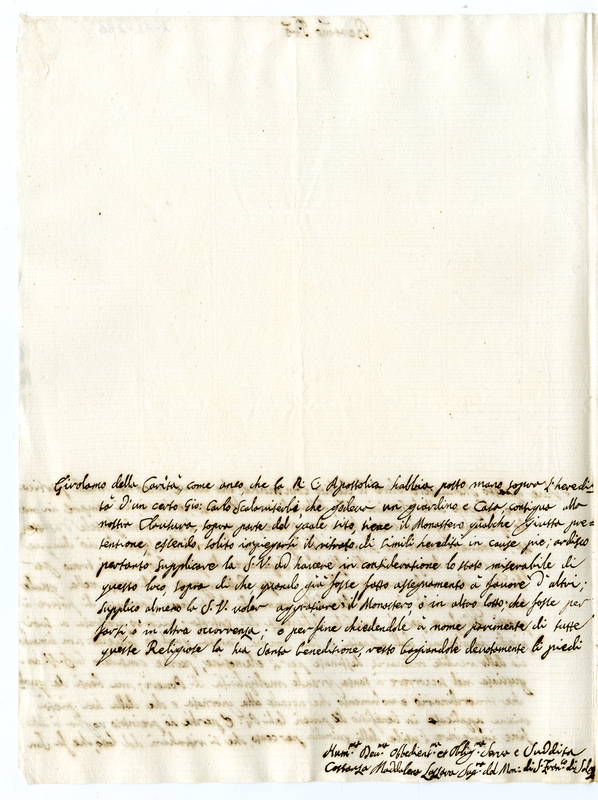 Girolamo della Carità, come anco che la R. C. Apostolica habbia posto mano sopra l'heredi-
tà d'un certo Gio: Carlo che godeva un giardino e Casa contigua alla
nostra Clausura, sopra parte del quale sito tiene il Monastero qualche Giusta pre-
tentione, essendo solito impiegarsi il ritrato di simili heredità in cause pie; ardisco
pertanto supplicare la S. V. ad havere in consideratione lo stato miserabile di
questo loco, sopra di che quando già fosse fatto assegnamento à favore d'altri;
supplico almeno la S. V. voler aggratiare il Monastero, ò in altro lotto, che fosse per
farsi, ò in altra occorrenza; e per fine chiedendole à nome parimente di tutte
queste Religiose la sua Santa beneditione, resto baciandole devotamente li piedi
Hum.ma Dev.ma Obbedient.ma et Oblig.ma Serva e Suddita
Costanza Maddalena del Mon.o di S. Fran.co di